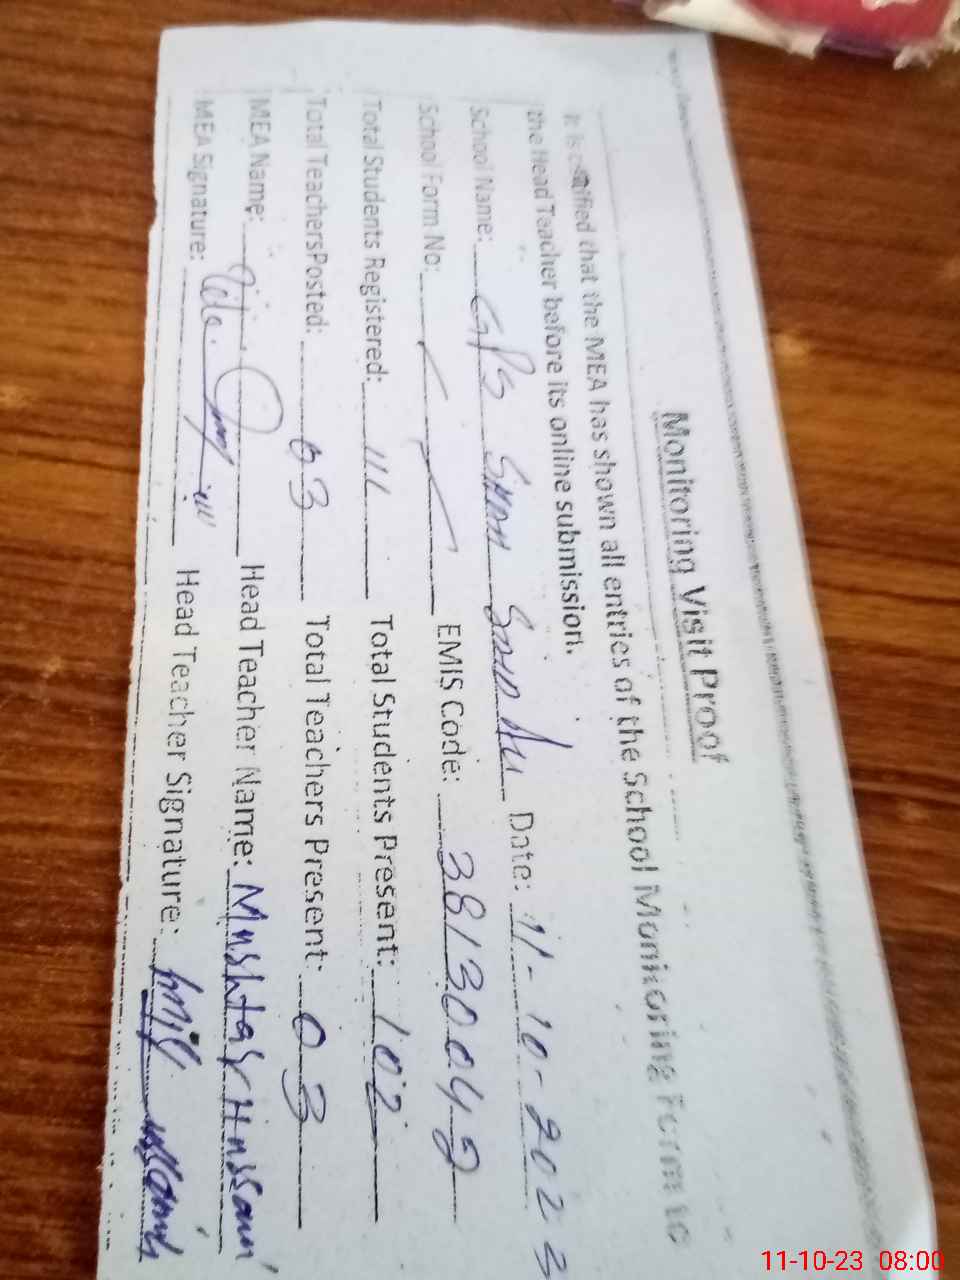 Monitoring Visit Proof
It is certified that the MEA has shown all entries of the School Monitoring Form to
the Head Teacher before its online submission.
School Name: GPS SHAH Date: 11-10-2023
School Form No: EMIS Code: 38130049
Total Students Registered: 111 Total Students Present: 102
Total Teachers Posted: 03 Total Teachers Present: 03
MEA Name: Head Teacher Name: Mushtaq Hussain
MEA Signature: Head Teacher Signature:
11-10-23 08:00